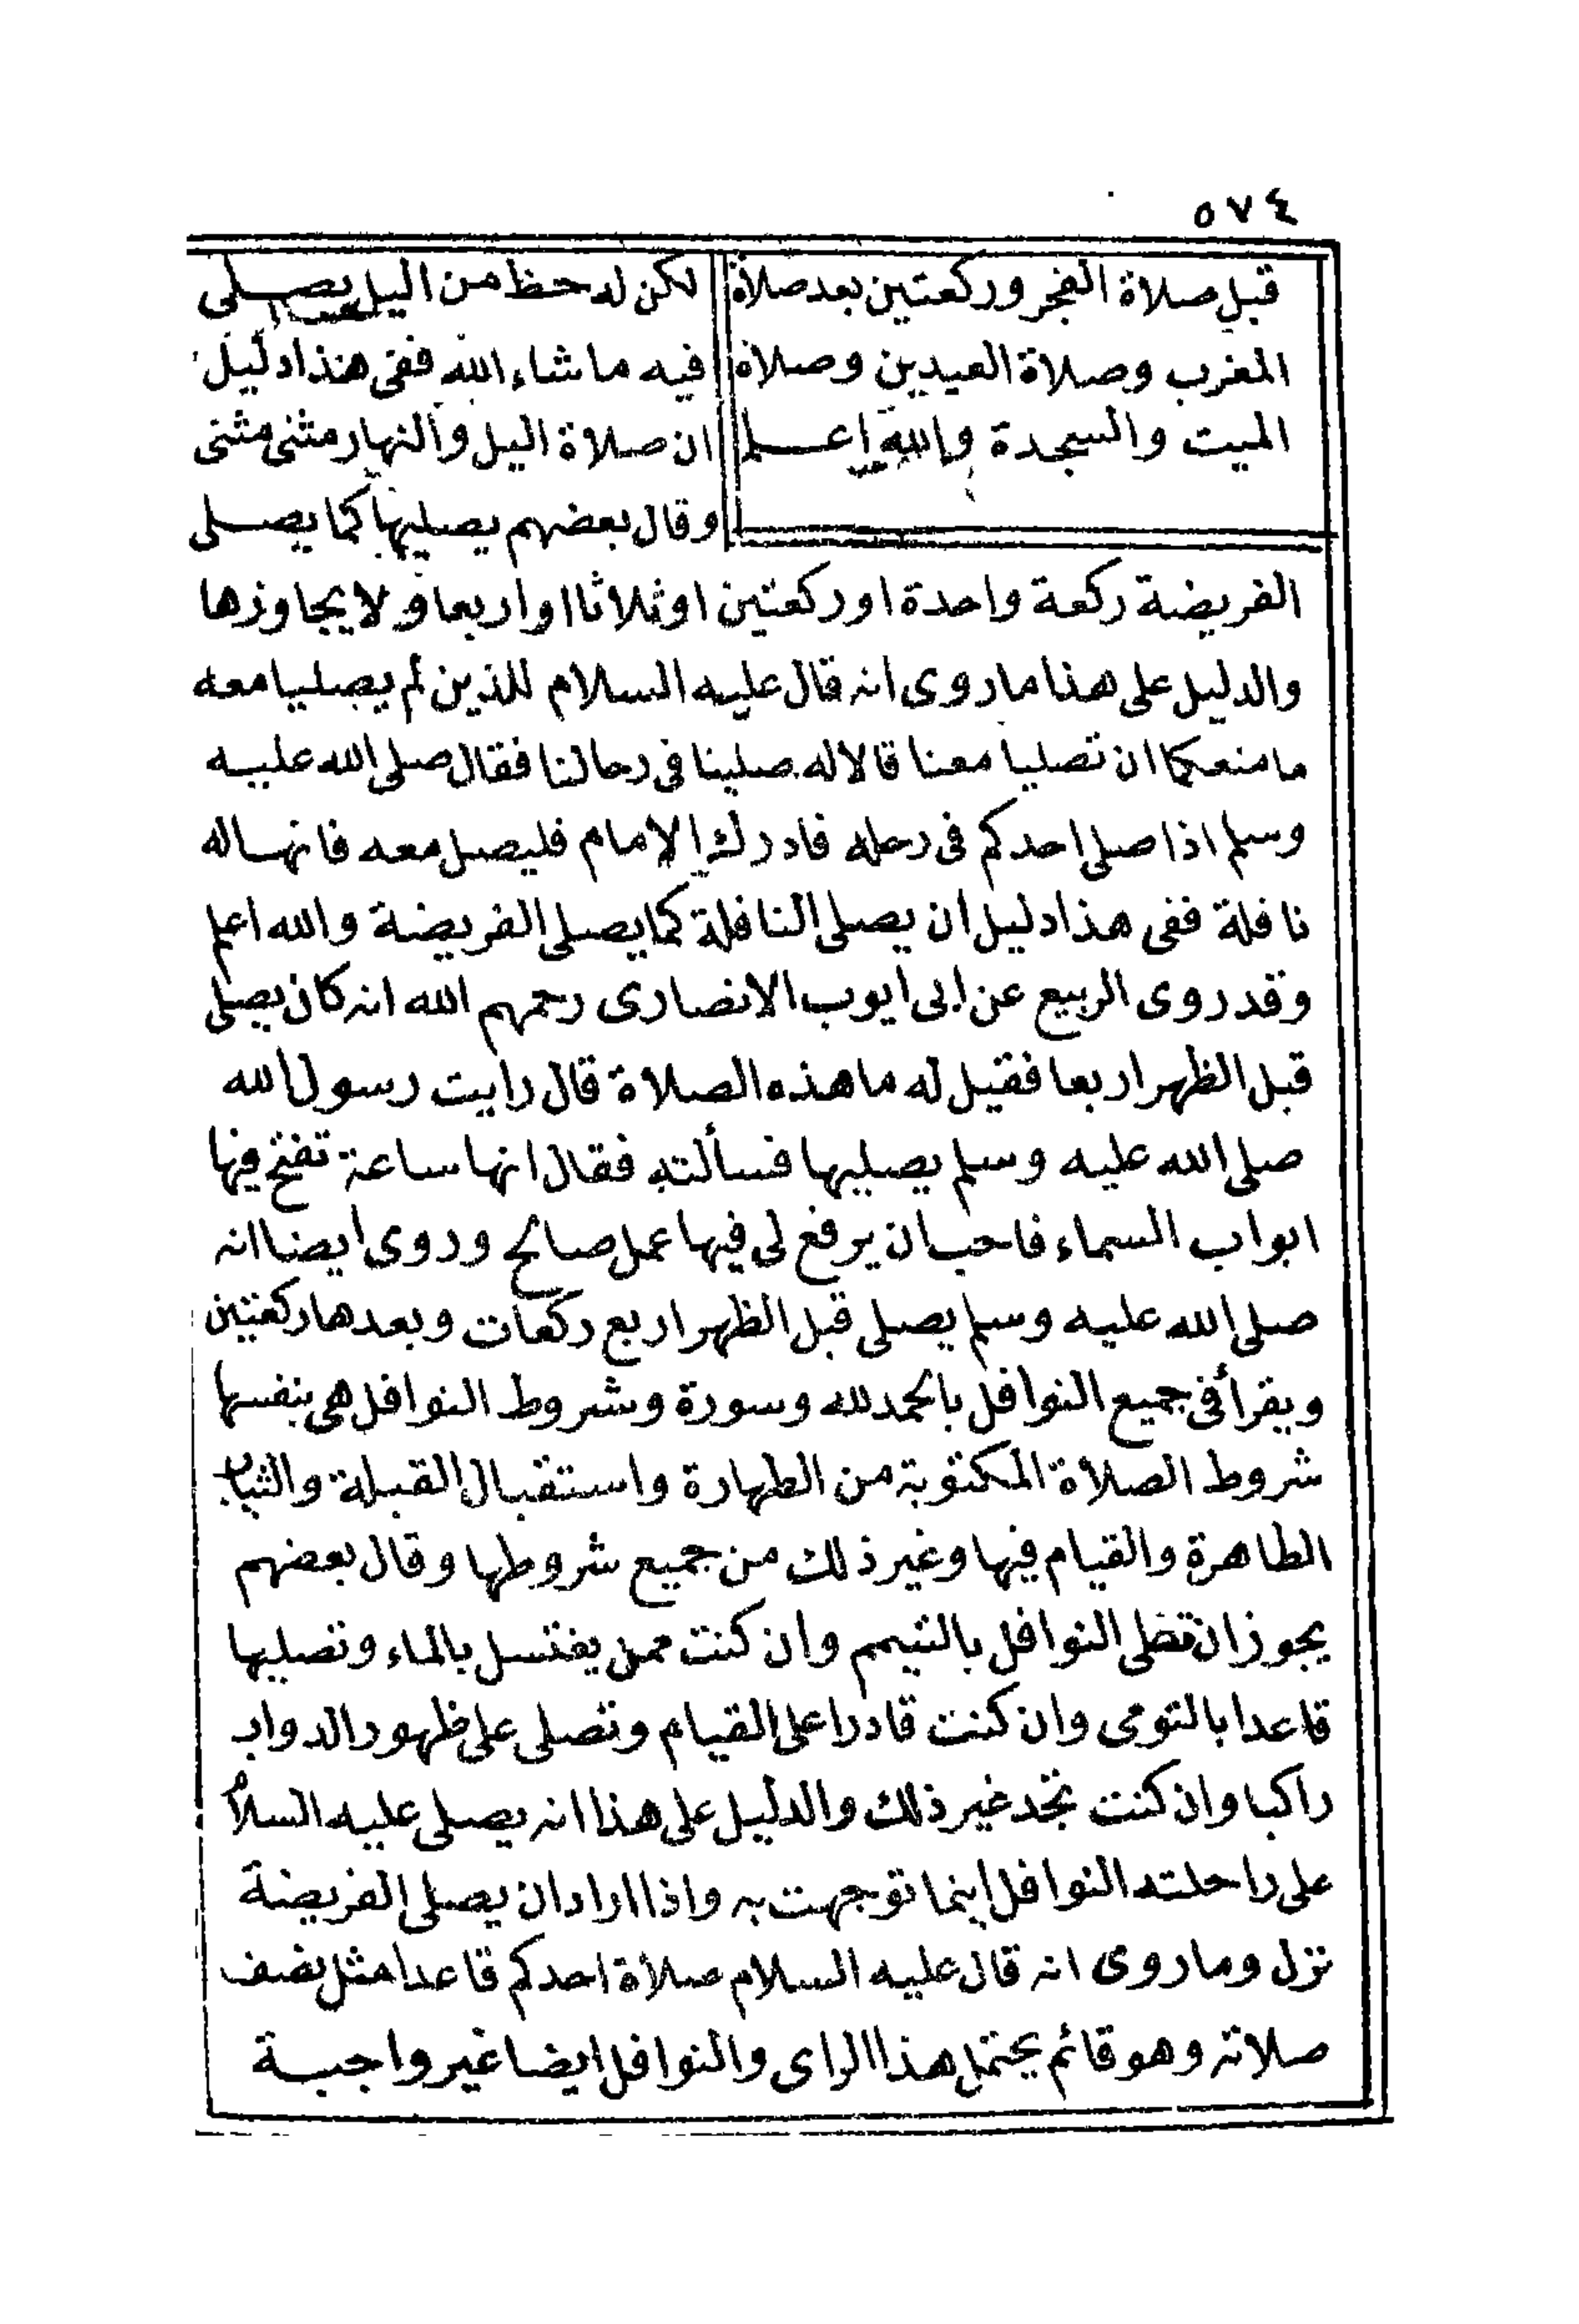 ٥٧٤
قبل صلاة الفجر وركعتين بعد صلاة
المغرب وصلاة العيدين وصلاة
الميت والسجدة والله اعلم
لكن له حظ من اليل يصلى
فيه ما شاء الله ففى هذا دليل
ان صلاة اليل والنهار مثنى مثنى
وقال بعضهم يصليها كما يصلى
الفريضة ركعة واحدة او ركعتين او ثلاثا او اربعا ولا يجاوزها
والدليل على هذا ما روى انه قال عليه السلام للذين لم يصليا معه
ما منعكما ان تصليا معنا قالا له صلينا فى رحالنا فقال صلى الله عليه
وسلم اذا صلى احدكم فى رحله فادرك الامام فليصل معه فانها له
نافلة ففى هذا دليل ان يصلى النافلة كما يصلى الفريضة والله اعلم
وقد روى الربيع عن ابى ايوب الانصارى رحمهم الله انه كان يصلى
قبل الظهر اربعا فقيل له ما هذه الصلاة قال رايت رسول الله
صلى الله عليه وسلم يصليها فسألته فقال انها ساعة تفتح فيها
ابواب السماء فاحب ان يرفع لى فيها عمل صالح وروى ايضا انه
صلى الله عليه وسلم يصلى قبل الظهر اربع ركعات وبعدها ركعتين
ويقرأ فى جميع النوافل بالحمد لله وسورة وشروط النوافل هى بنفسها
شروط الصلاة المكتوبة من الطهارة واستقبال القبلة والثياب
الطاهرة والقيام فيها وغير ذلك من جميع شروطها وقال بعضهم
يجوز ان تصلى النوافل بالتيمم وان كنت ممن يغتسل بالماء وتصليها
قاعدا بالتومى وان كنت قادرا على القيام وتصلى على ظهور الدواب
راكبا وان كنت تجد غير ذلك والدليل على هذا انه يصلى عليه السلام
على راحلته النوافل اينما توجهت به واذا اراد ان يصلى الفريضة
نزل وما روى انه قال عليه السلام صلاة احدكم قاعدا مثل نصف
صلاته وهو قائم يحتمل هذا الراى والنوافل ايضا غير واجبة